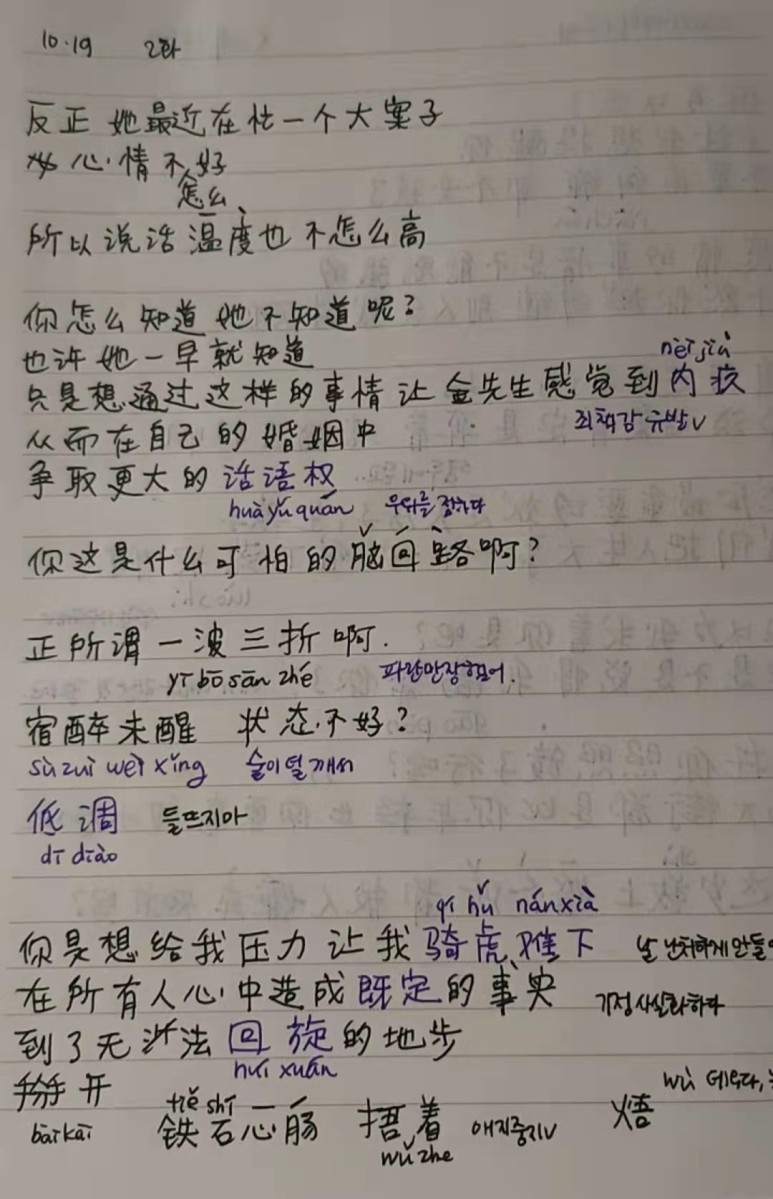 10.19 2화
反正 她最近在忙一个大案子
心情不好
怎么
所以说话温度也不怎么高
你怎么知道她不知道呢?
也许她一早就知道
nèi jiù
只是想通过这样的事情让金先生感觉到内疚
죄책감 유발v
从而在自己的婚姻中
争取更大的话语权
huàyǔquán 우위를 점하다
你这是什么可怕的脑回路啊?
正所谓一波三折啊.
yī bō sān zhé 파란만장했어.
宿醉未醒 状态不好?
sù zuì wèi xǐng 술이 덜 깨서
低调 들뜨지마
dī diào
qí hǔ nánxià
你是想给我压力让我骑虎难下 날 난처하게 만들어
在所有人心中造成既定的事实 기정사실화하다
到了无法回旋的地步
huí xuán
掰开
bāi kāi
tiě shí
铁石心肠 捂着 애지중지v
wǔ zhe
wù 데우다,